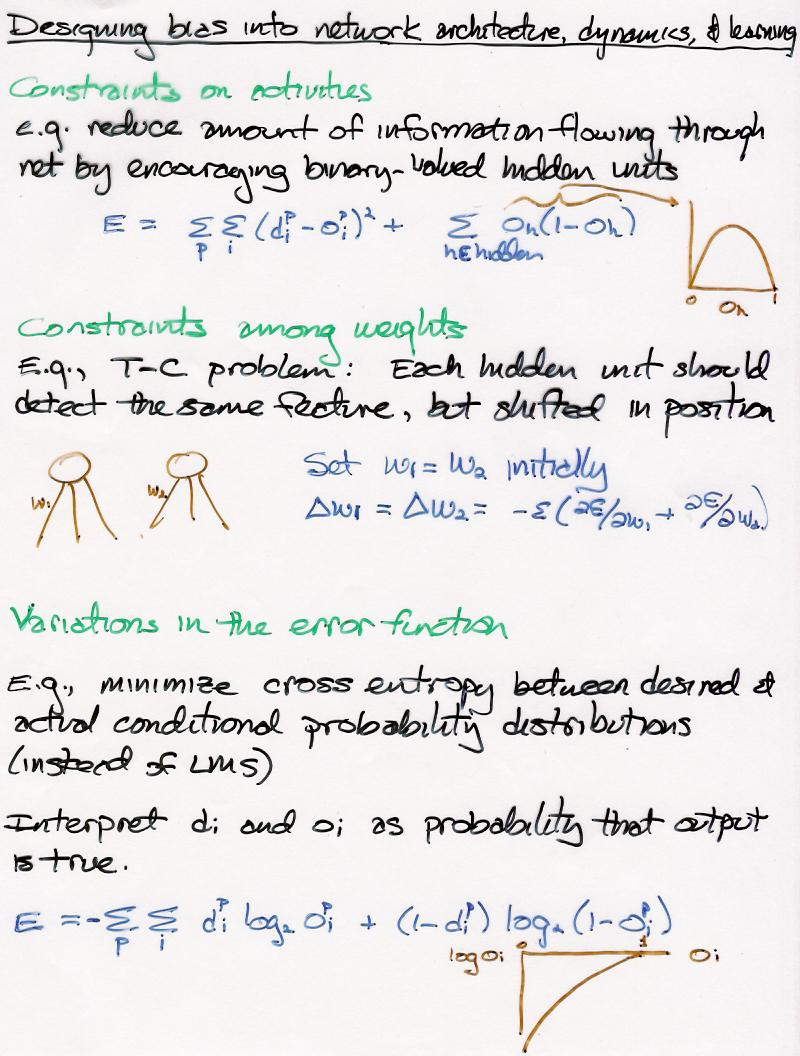 Designing bias into network architecture, dynamics, & learning
Constraints on activities
e.g. reduce amount of information flowing through
net by encouraging binary-valued hidden units
E = Σ_p Σ_i (d_i^p - o_i^p)^2 + Σ_{h∈hidden} o_h(1-o_h)
0 o_h 1
Constraints among weights
E.g., T-C problem: Each hidden unit should
detect the same feature, but shifted in position
w_1 w_2 Set w_1 = w_2 initially
Δw_1 = Δw_2 = -ε(∂E/∂w_1 + ∂E/∂w_2)
Variations in the error function
E.g., minimize cross entropy between desired &
actual conditional probability distributions
(instead of LMS)
Interpret d_i and o_i as probability that output
is true.
E = -Σ_p Σ_i d_i^p log_2 o_i^p + (1-d_i^p) log_2 (1-o_i^p)
log o_i 0 1 o_i